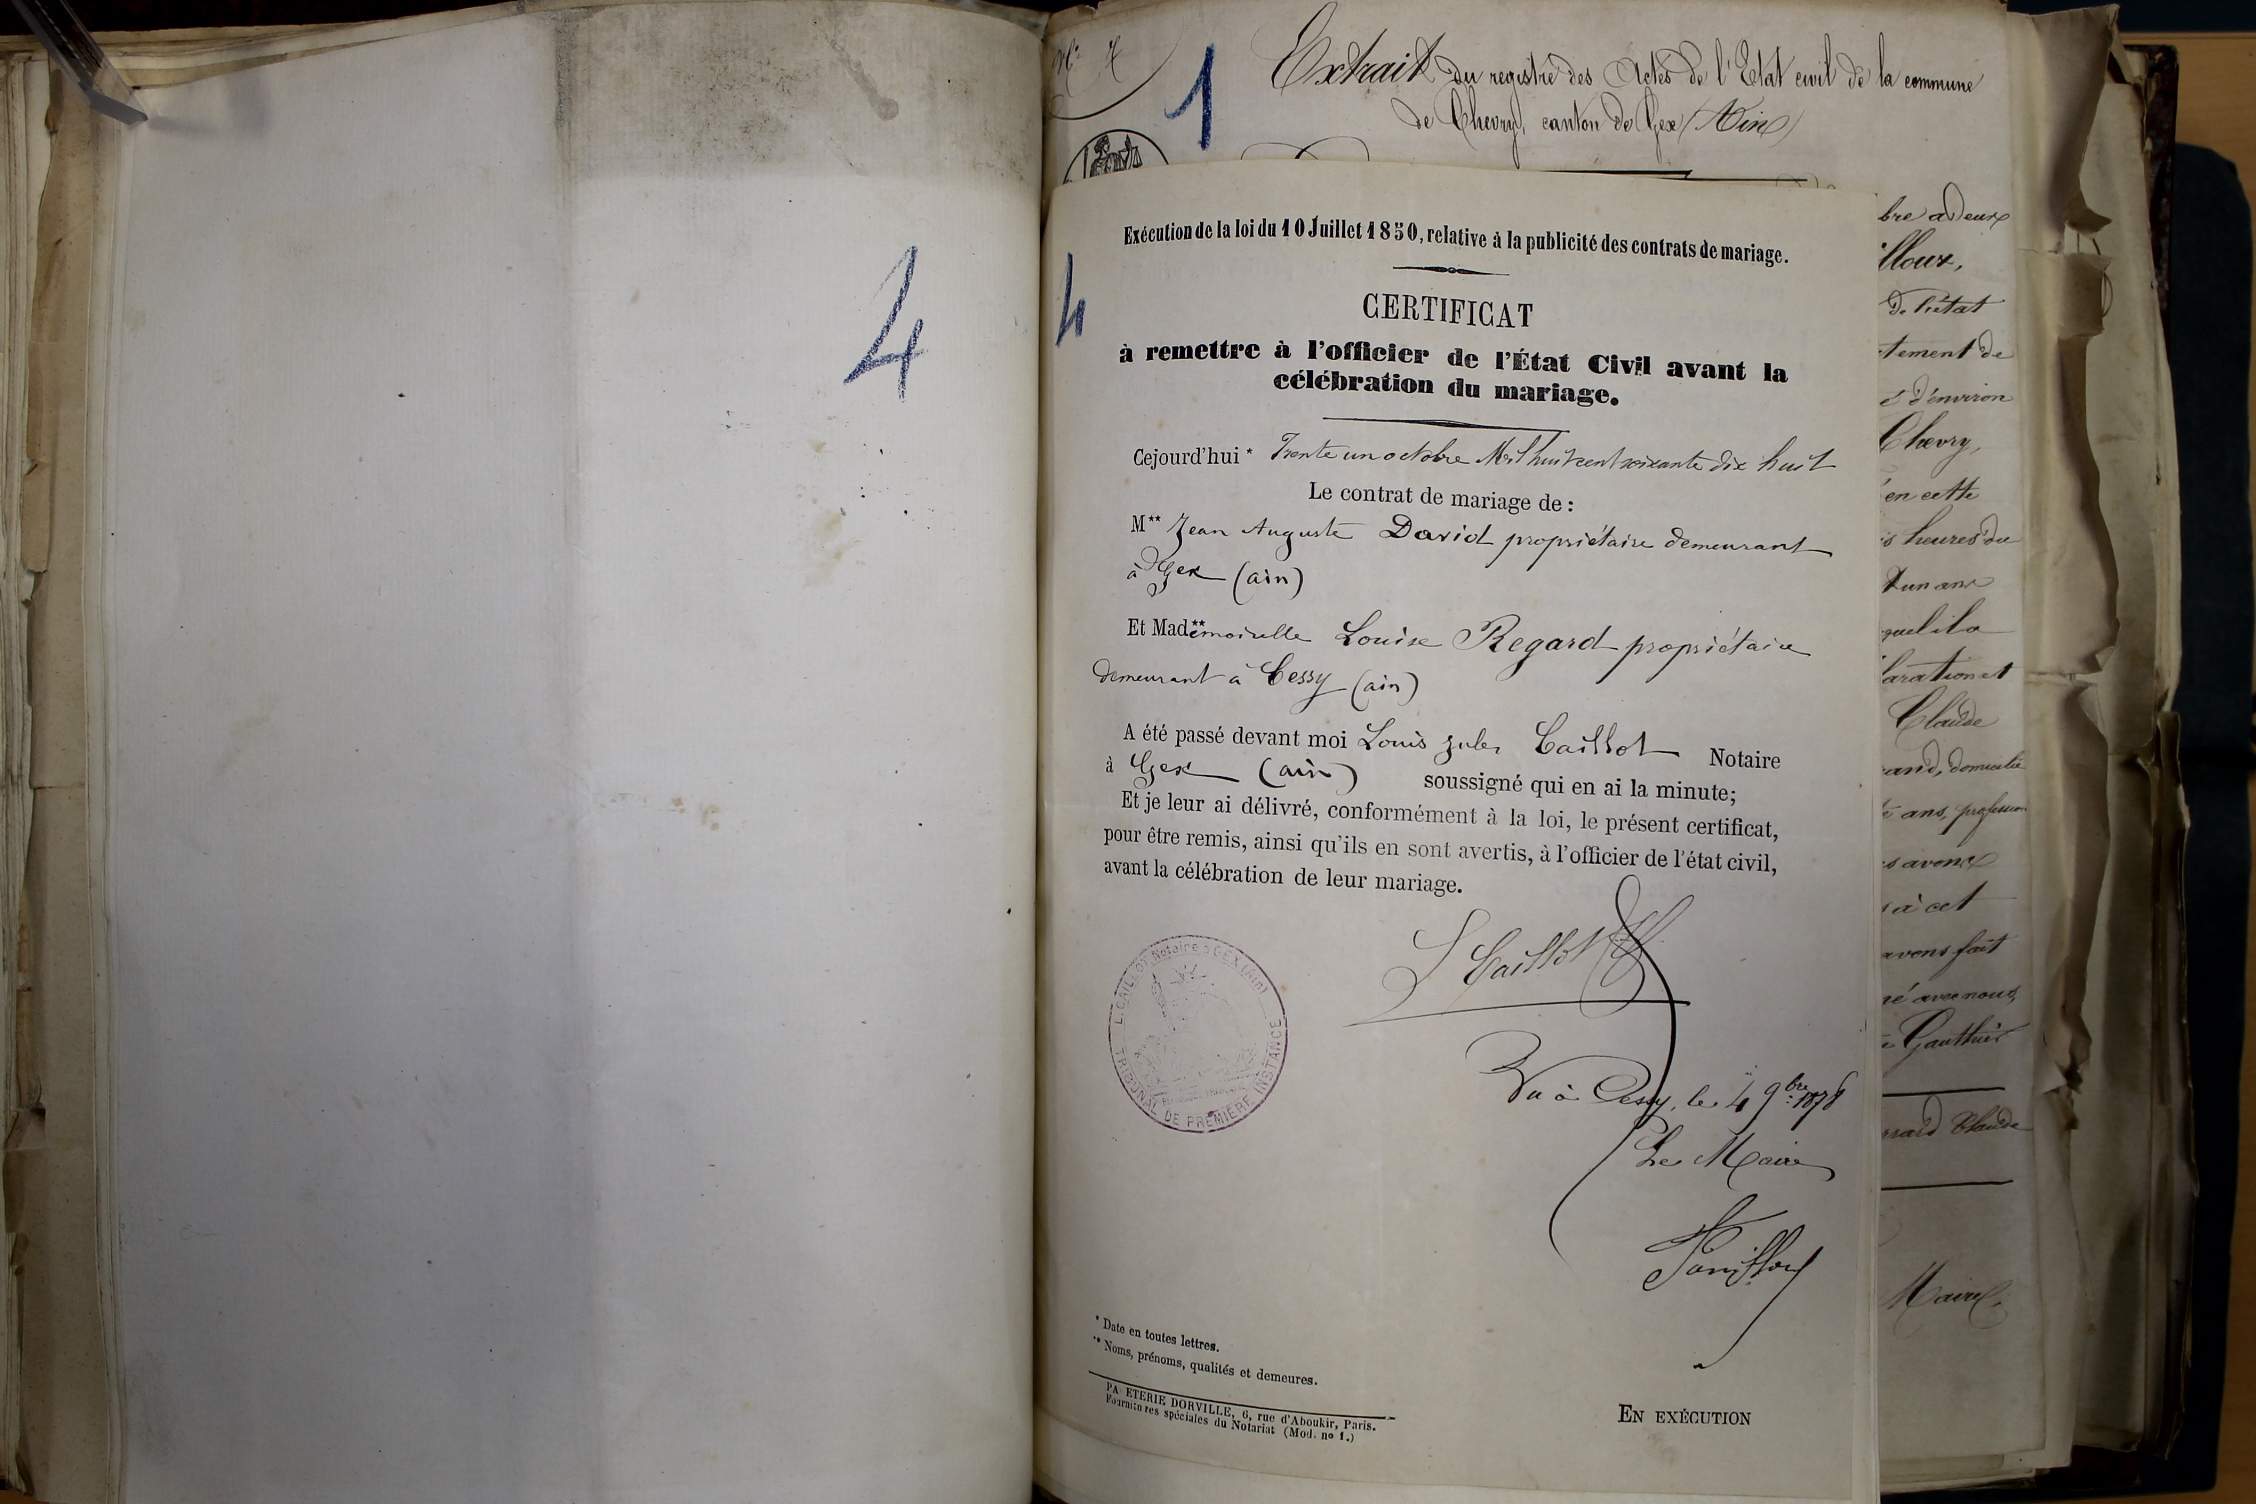 4
N° 7
1
Extrait du registre des Actes de l'Etat civil de la commune
de Chevry, canton de Gex (Ain)
Exécution de la loi du 10 Juillet 1850, relative à la publicité des contrats de mariage.
4
CERTIFICAT
à remettre à l'officier de l'État Civil avant la
célébration du mariage.
Cejourd'hui * Trente un octobre Mil huit cent soixante dix huit
Le contrat de mariage de :
M** Jean Auguste David propriétaire demeurant
à Gex (ain)
Et Mad**emoiselle Louise Regard propriétaire
demeurant à Cessy (ain)
A été passé devant moi Louis Jules Caillot Notaire
à Gex (ain) soussigné qui en ai la minute;
Et je leur ai délivré, conformément à la loi, le présent certificat,
pour être remis, ainsi qu'ils en sont avertis, à l'officier de l'état civil,
avant la célébration de leur mariage.
L Caillot
L. CAILLOT Notaire à GEX (Ain)
TRIBUNAL DE PREMIÈRE INSTANCE
Vu à Cessy, le 4 9bre 1878
Le Maire
* Date en toutes lettres.
** Noms, prénoms, qualités et demeures.
PA ETERIE DORVILLE, 6, rue d'Aboukir, Paris.
Fournitures spéciales du Notariat (Mod. no 1.)
EN EXÉCUTION
bre à deux
illoux,
de l'état
tement de
s d'environ
Chevry,
en cette
is heures du
d'un an
quel il a
laration et
Claude
and, domicilié
ans, profession
s avons
à cet
avons fait
né avec nous,
Gauthier
Claude
Maire